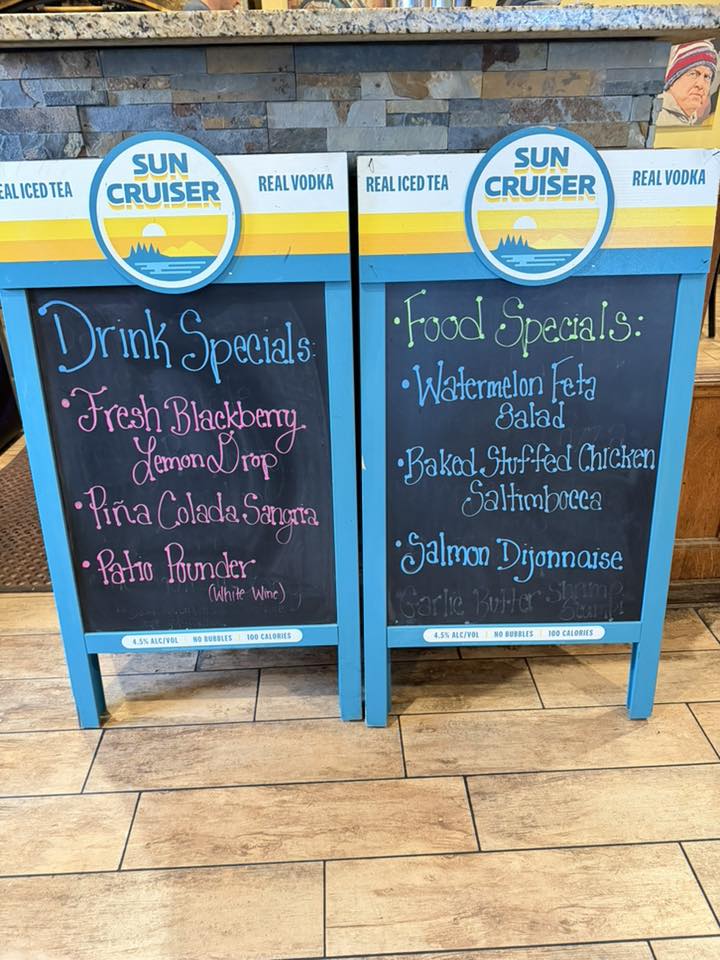 EAL ICED TEA
SUN
CRUISER
REAL VODKA
Drink Specials:
• Fresh Blackberry
Lemon Drop
• Piña Colada Sangria
• Patio Pounder
(White Wine)
4.5% ALC/VOL | NO BUBBLES | 100 CALORIES
REAL ICED TEA
SUN
CRUISER
REAL VODKA
• Food Specials:
• Watermelon Feta
Salad
• Baked Stuffed Chicken
Saltimbocca
• Salmon Dijonnaise
Garlic Butter
4.5% ALC/VOL | NO BUBBLES | 100 CALORIES